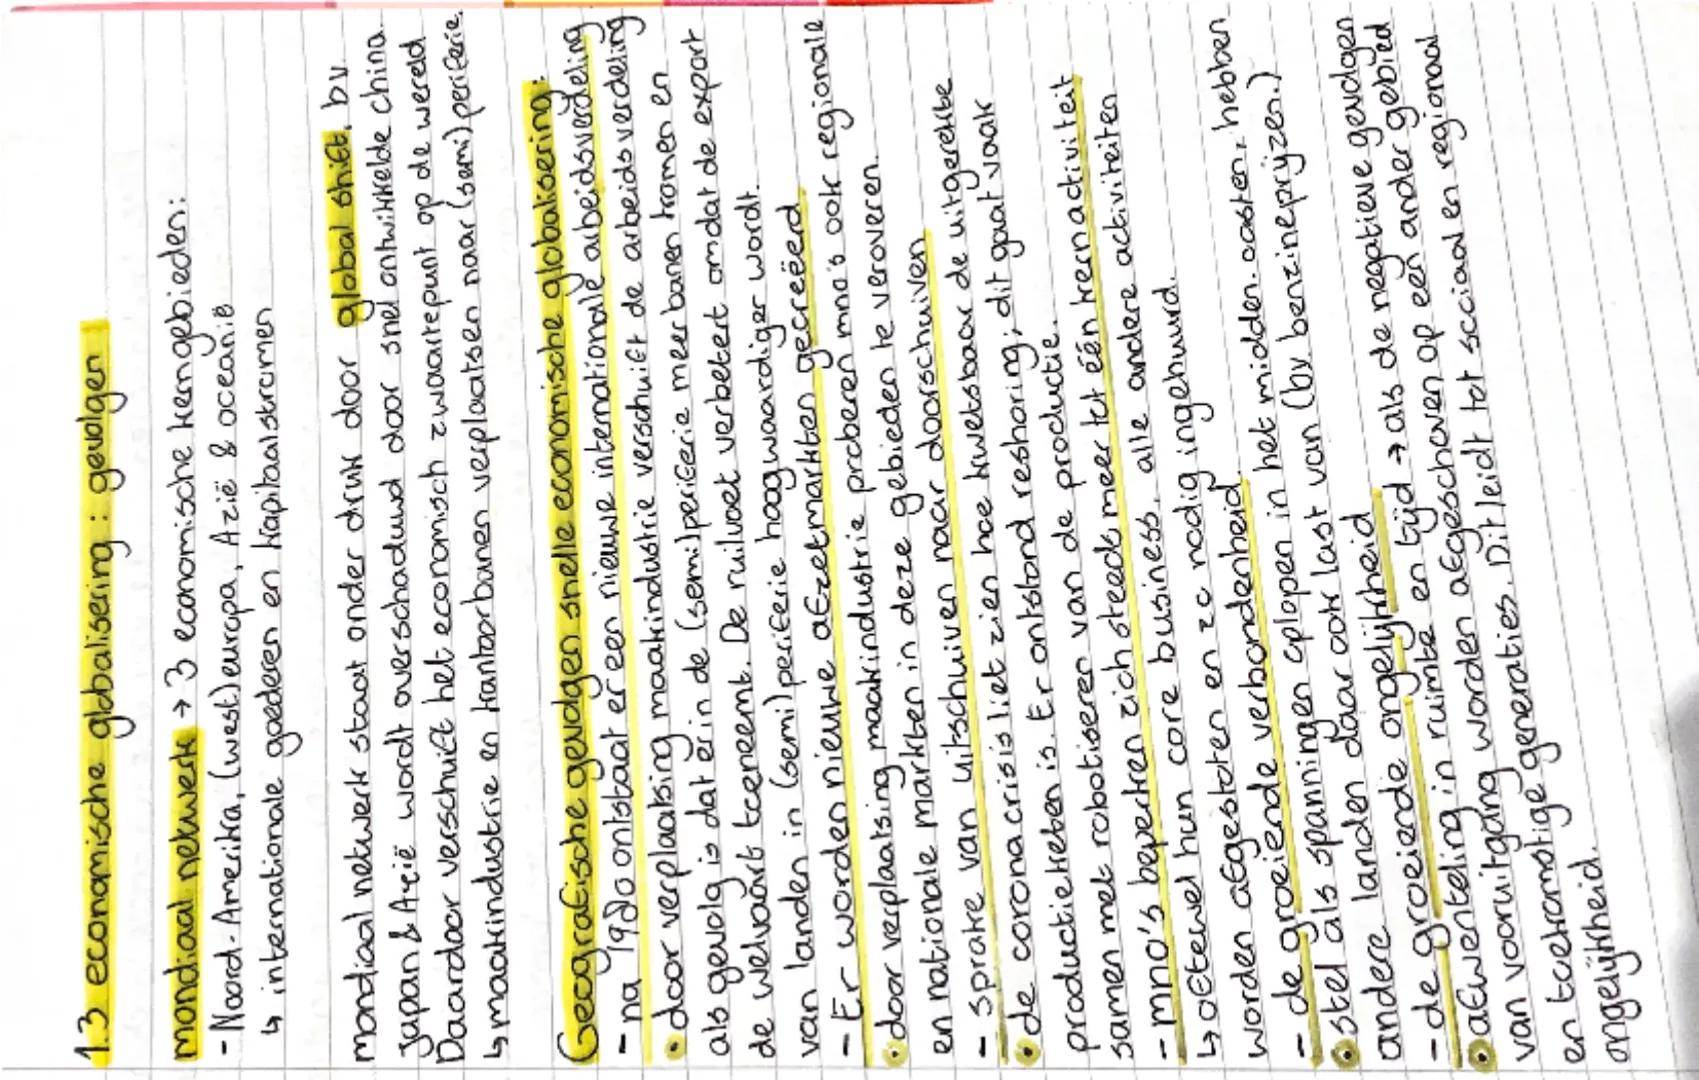 1.3 economische globalisering : gevolgen
mondiaal netwerk → 3 economische kerngebieden:
- Noord-Amerika, (west)europa, Azië & oceanië
↳ internationale goederen en kapitaalstromen
mondiaal netwerk staat onder druk door global shift. bv
Japan & Azië wordt overschaduwd door snel ontwikkelde china.
Daardoor verschuift het economisch zwaartepunt op de wereld
↳ maakindustrie en kantoorbanen verplaatsen naar (semi)periferie.
Geografische gevolgen snelle economische globalisering:
- na 1980 ontstaat er een nieuwe internationale arbeidsverdeling
• door verplaatsing maakindustrie verschuift de arbeidsverdeling
als gevolg is dat er in de (semi)periferie meer banen komen en
de welvaart toeneemt. De ruilvoet verbetert omdat de export
van landen in (semi)periferie hoogwaardiger wordt.
- Er worden nieuwe afzetmarkten gecreëerd
• door verplaatsing maakindustrie proberen mno's ook regionale
en nationale markten in deze gebieden te veroveren.
- sprake van uitschuiven naar doorschuiven
• de coronacrisis liet zien hoe kwetsbaar de uitgerekte
productieketen is. Er ontstond reshoring; dit gaat vaak
samen met robotiseren van de productie.
- mno's beperken zich steeds meer tot één kernactiviteit
↳ oftewel hun core business. alle andere activiteiten
worden afgestoten en zo nodig ingehuurd.
- de groeiende verbondenheid
• stel als spanningen oplopen in het midden.oosten, hebben
andere landen daar ook last van (bv benzineprijzen.)
- de groeiende ongelijkheid
• afwenteling in ruimte en tijd → als de negatieve gevolgen
van vooruitgang worden afgeschoven op een ander gebied
en toekomstige generaties. Dit leidt tot sociaal en regionaal
ongelijkheid.